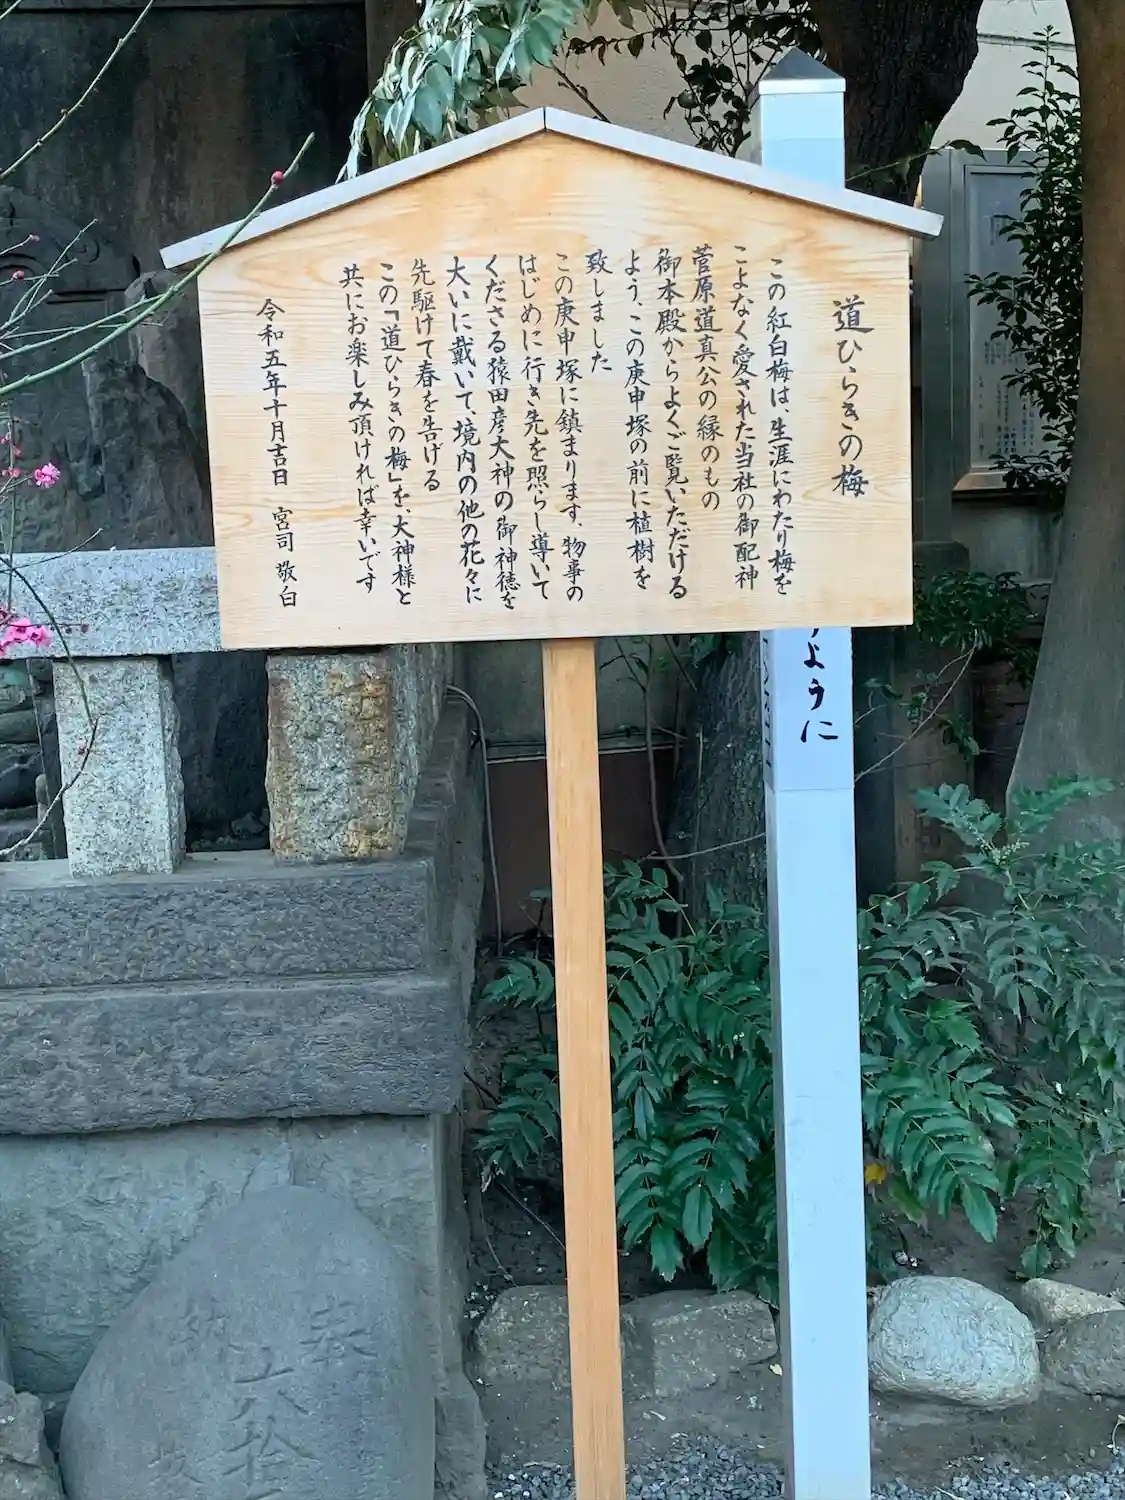 道ひらきの梅
この紅白梅は、生涯にわたり梅を
こよなく愛された当社の御配神
菅原道真公の縁のもの
御本殿からよくご覧いただける
よう、この庚申塚の前に植樹を
致しました
この庚申塚に鎮まります、物事の
はじめに行き先を照らし導いて
くださる猿田彦大神の御神徳を
大いに戴いて、境内の他の花々に
先駆けて春を告げる
この「道ひらきの梅」を、大神様と
共にお楽しみ頂ければ幸いです
令和五年十月吉日 宮司 敬白
ように
奉
納